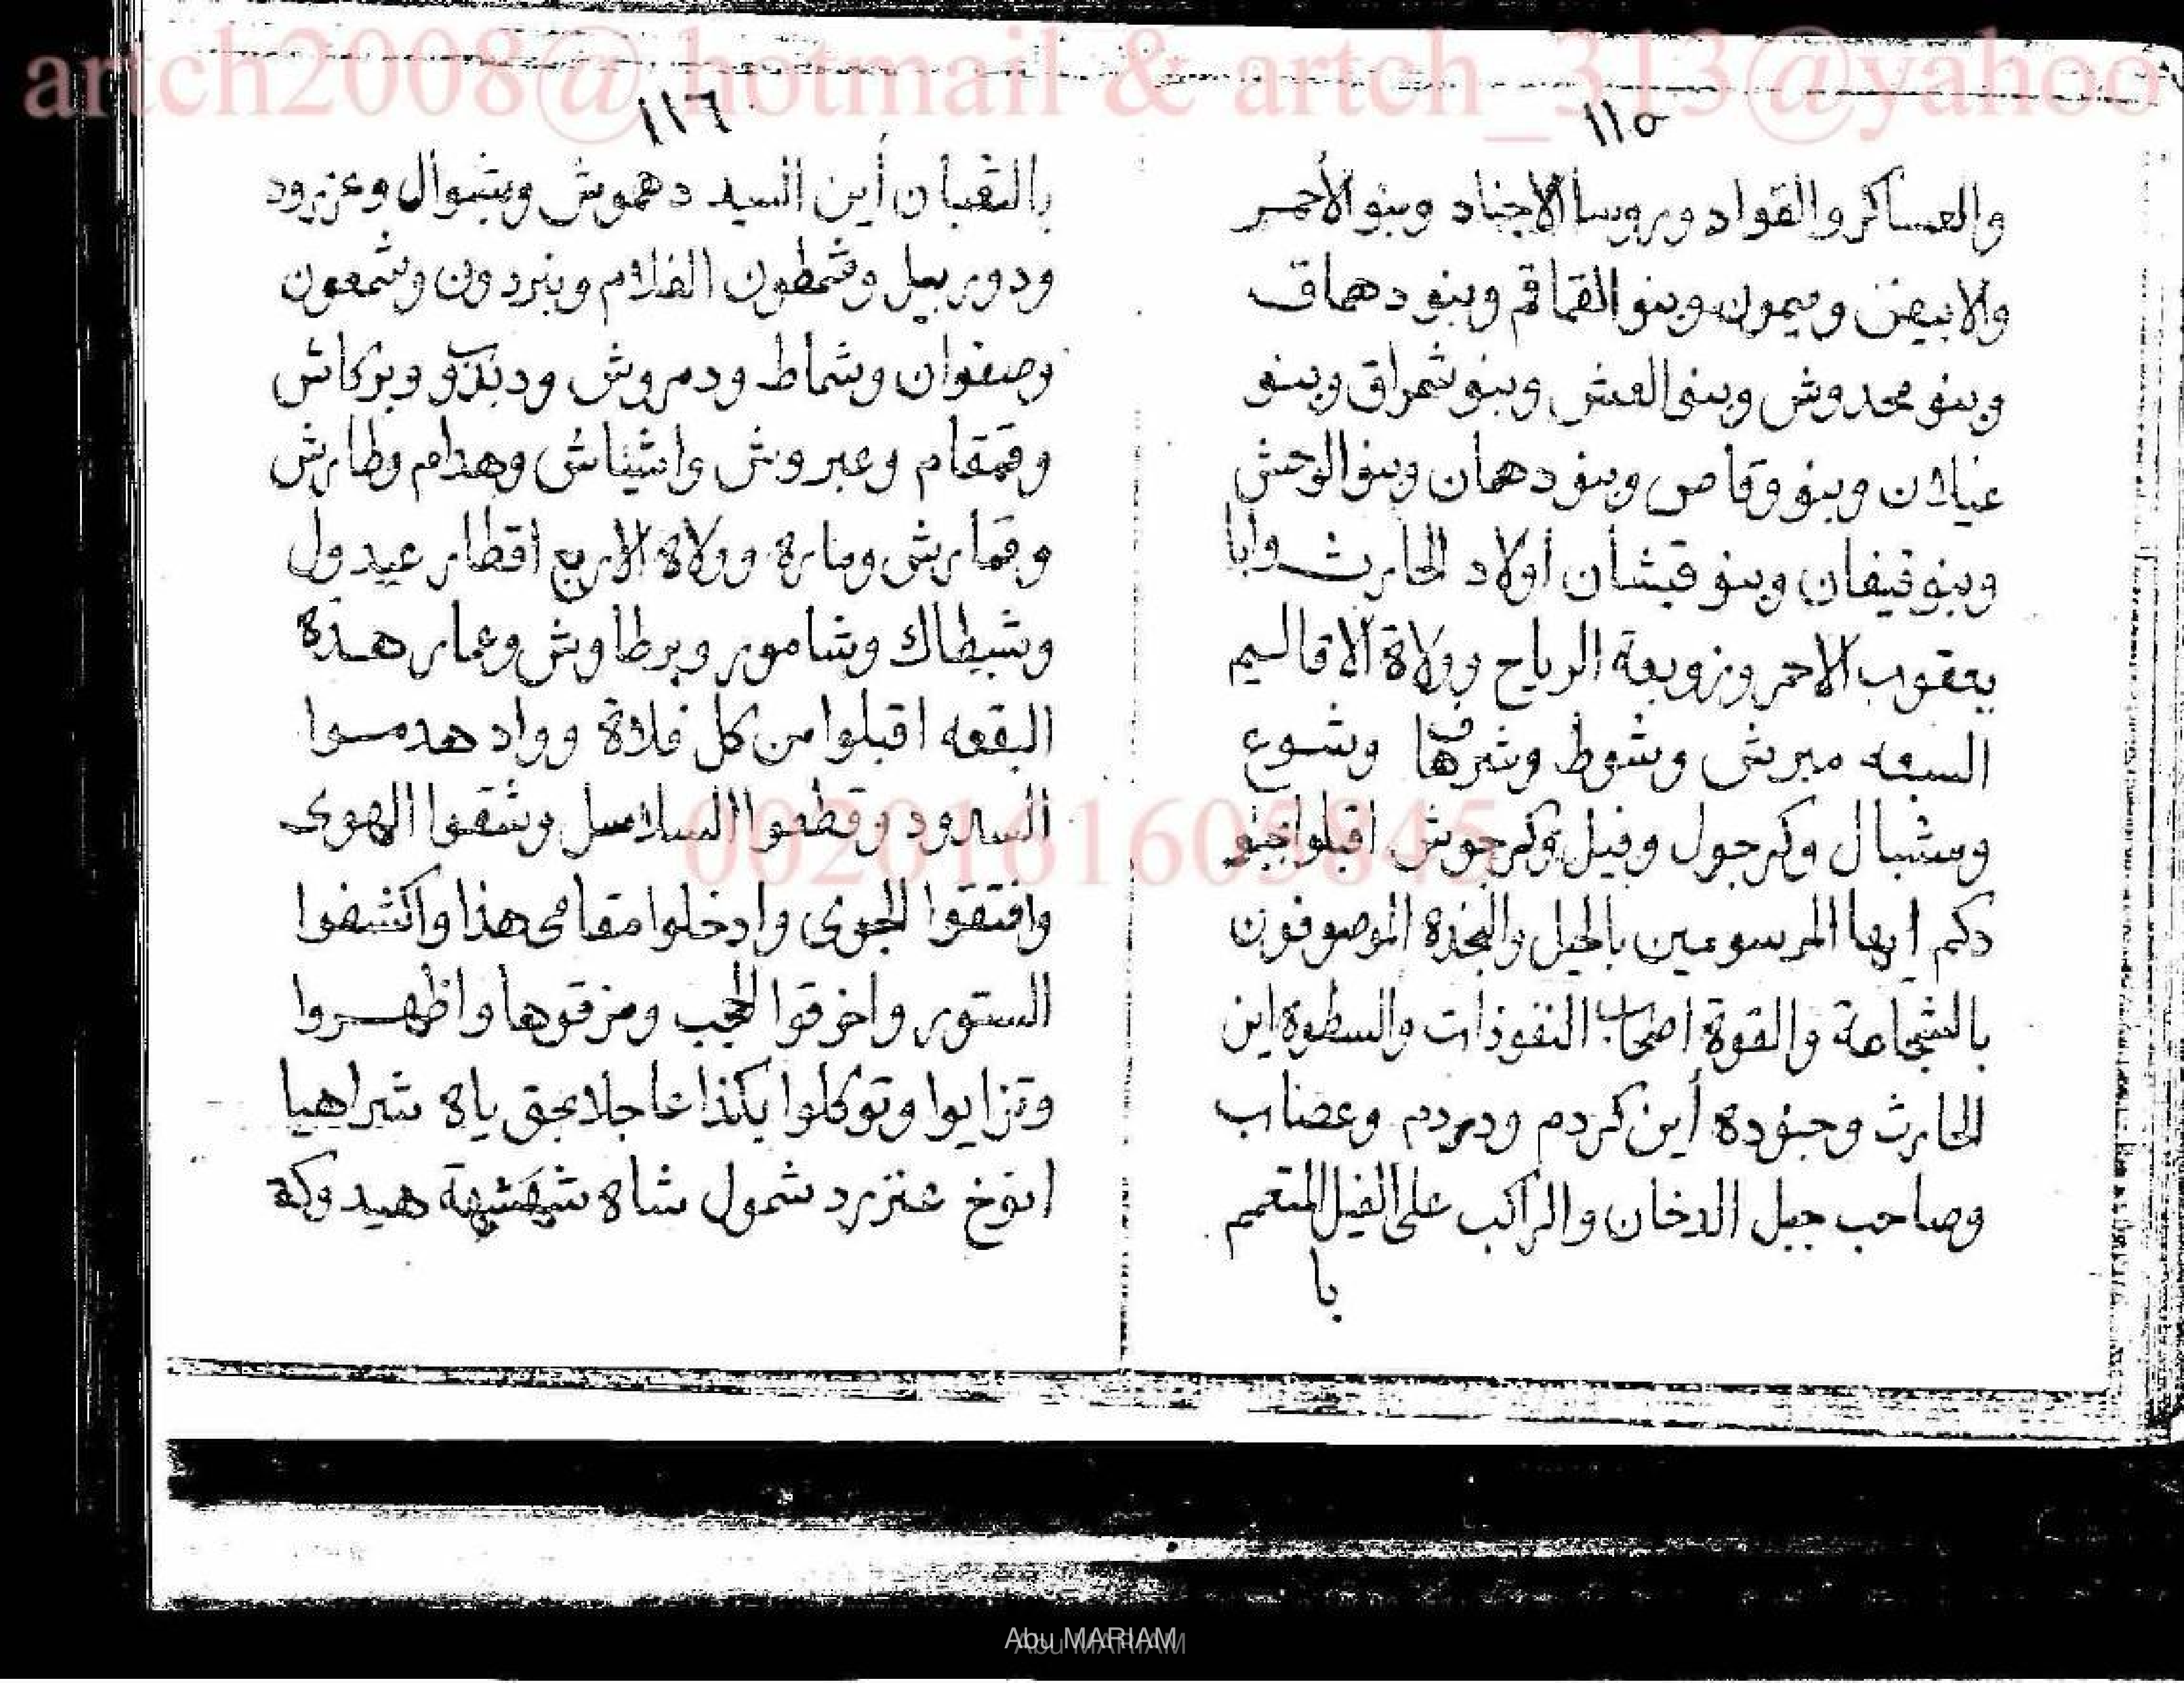 artch2008@ hotmail & artch_313@yahoo
١١٥
والعساكر والقواد وروسا الاجناد وبنو الأحمر
والابيض وميمون وبنو القماقم وبنو دهماق
وبنو محدوش وبنى العش وبنو شمراق وبنو
عيلان وبنو وقاص وبنو دهمان وبنو الوحش
وبنو قيفان وبنو قبشان أولاد الحارث وابا
يعقوب الاحمر وزوبعة الرياح وولاة الاقاليم
السبعه مبرش وشوط وشرها وشوع
ومشبال وكرجول وفيل وكرجوش اقبلوا بجنو
دكم ايها المرسومين بالحيل والنجدة الموصوفون
بالشجاعة والقوة اصحاب النفوذات والسطوة اين
الحارث وجنوده أين كردم ودردم وعصاب
وصاحب جبل الدخان والراكب على الفيل المتعمم
با
١١٦
بالثعبان أين السيد دهموش وشوال وعزرود
ودوربيل وشمطون الغلام وبنردون وشمعون
وصفوان وشماط ودمروش ودبدو وبركاش
وقمقام وعبروش واشياش وهدام وطارش
وقمارش ومارة وولاة الاربع اقطار عيدول
وشيطاك وشامور وبرطاوش وعمار هذه
البقعه اقبلوا من كل فلاة وواد هدموا
السدود وقطعوا السلاسل وشقوا الهوى
وافتقوا الجوى وادخلوا مقامى هذا واكشفوا
الستور واخرقوا الحجب ومزقوها واظهروا
وتزايوا وتوكلوا بكذا عاجلا بحق ياه شراهيا
انوخ عنزرد شمول شاه شهشهة هيدوكة
00201161605845
Abu MARIAM